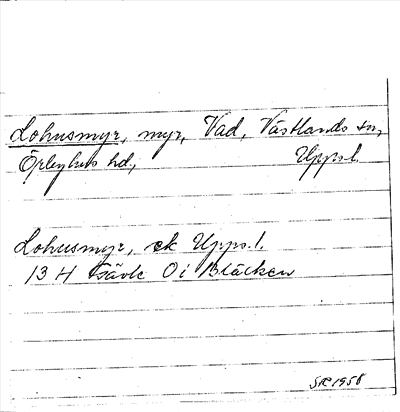 Lohusmyr, myr, Vad, Västlands sn,
Örbyhus hd, Upps.l.
Lohusmyr, ek Upps.l.
13 H Gävle Oi Bläcken
SÄ 1958